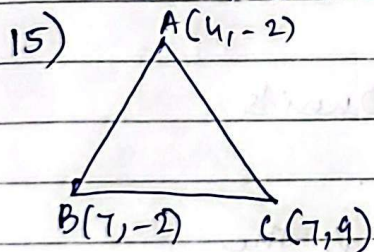 15)
A(4,-2)
B(7,-2) C(7,9)